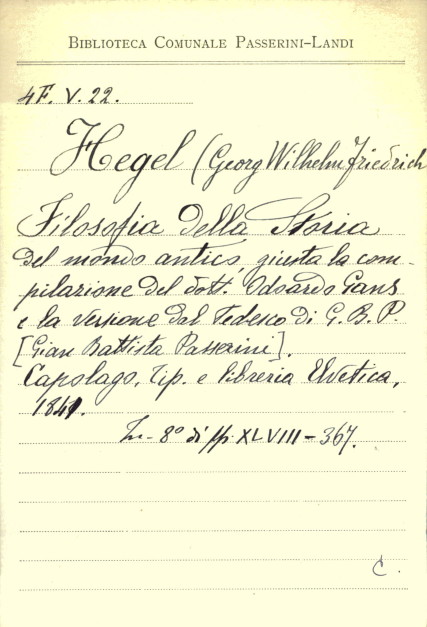 BIBLIOTECA COMUNALE PASSERINI-LANDI
4F. V. 22.
Hegel (Georg Wilhelm Friedrich
Filosofia della Storia
del mondo antico, giusta la com-
pilazione del dott. Odoardo Gans
e la versione dal tedesco di G. B. P.
[Gian Battista Passerini].
Capolago, Tip. e libreria Elvetica,
1841.
In-8° di pp. XLVIII-367.
C.